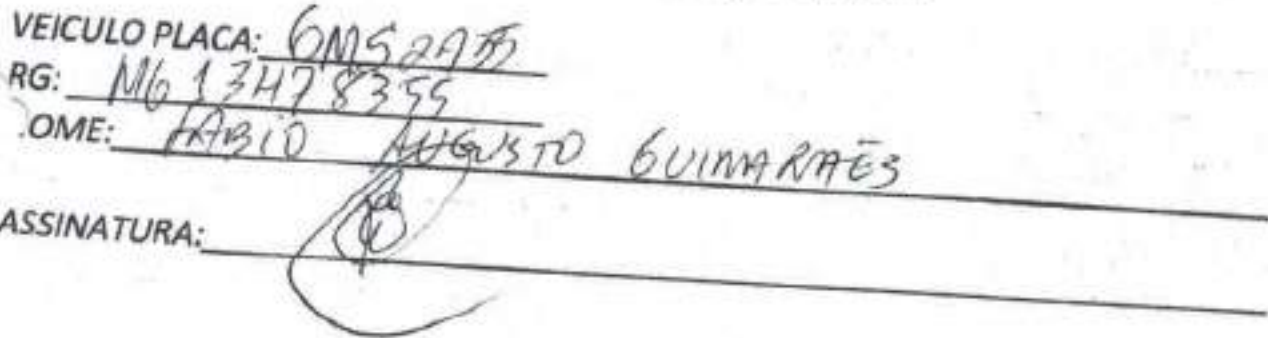 VEICULO PLACA:
RG: MG 13478355
.OME: FABIO AUGUSTO GUIMARAÊS
ASSINATURA: